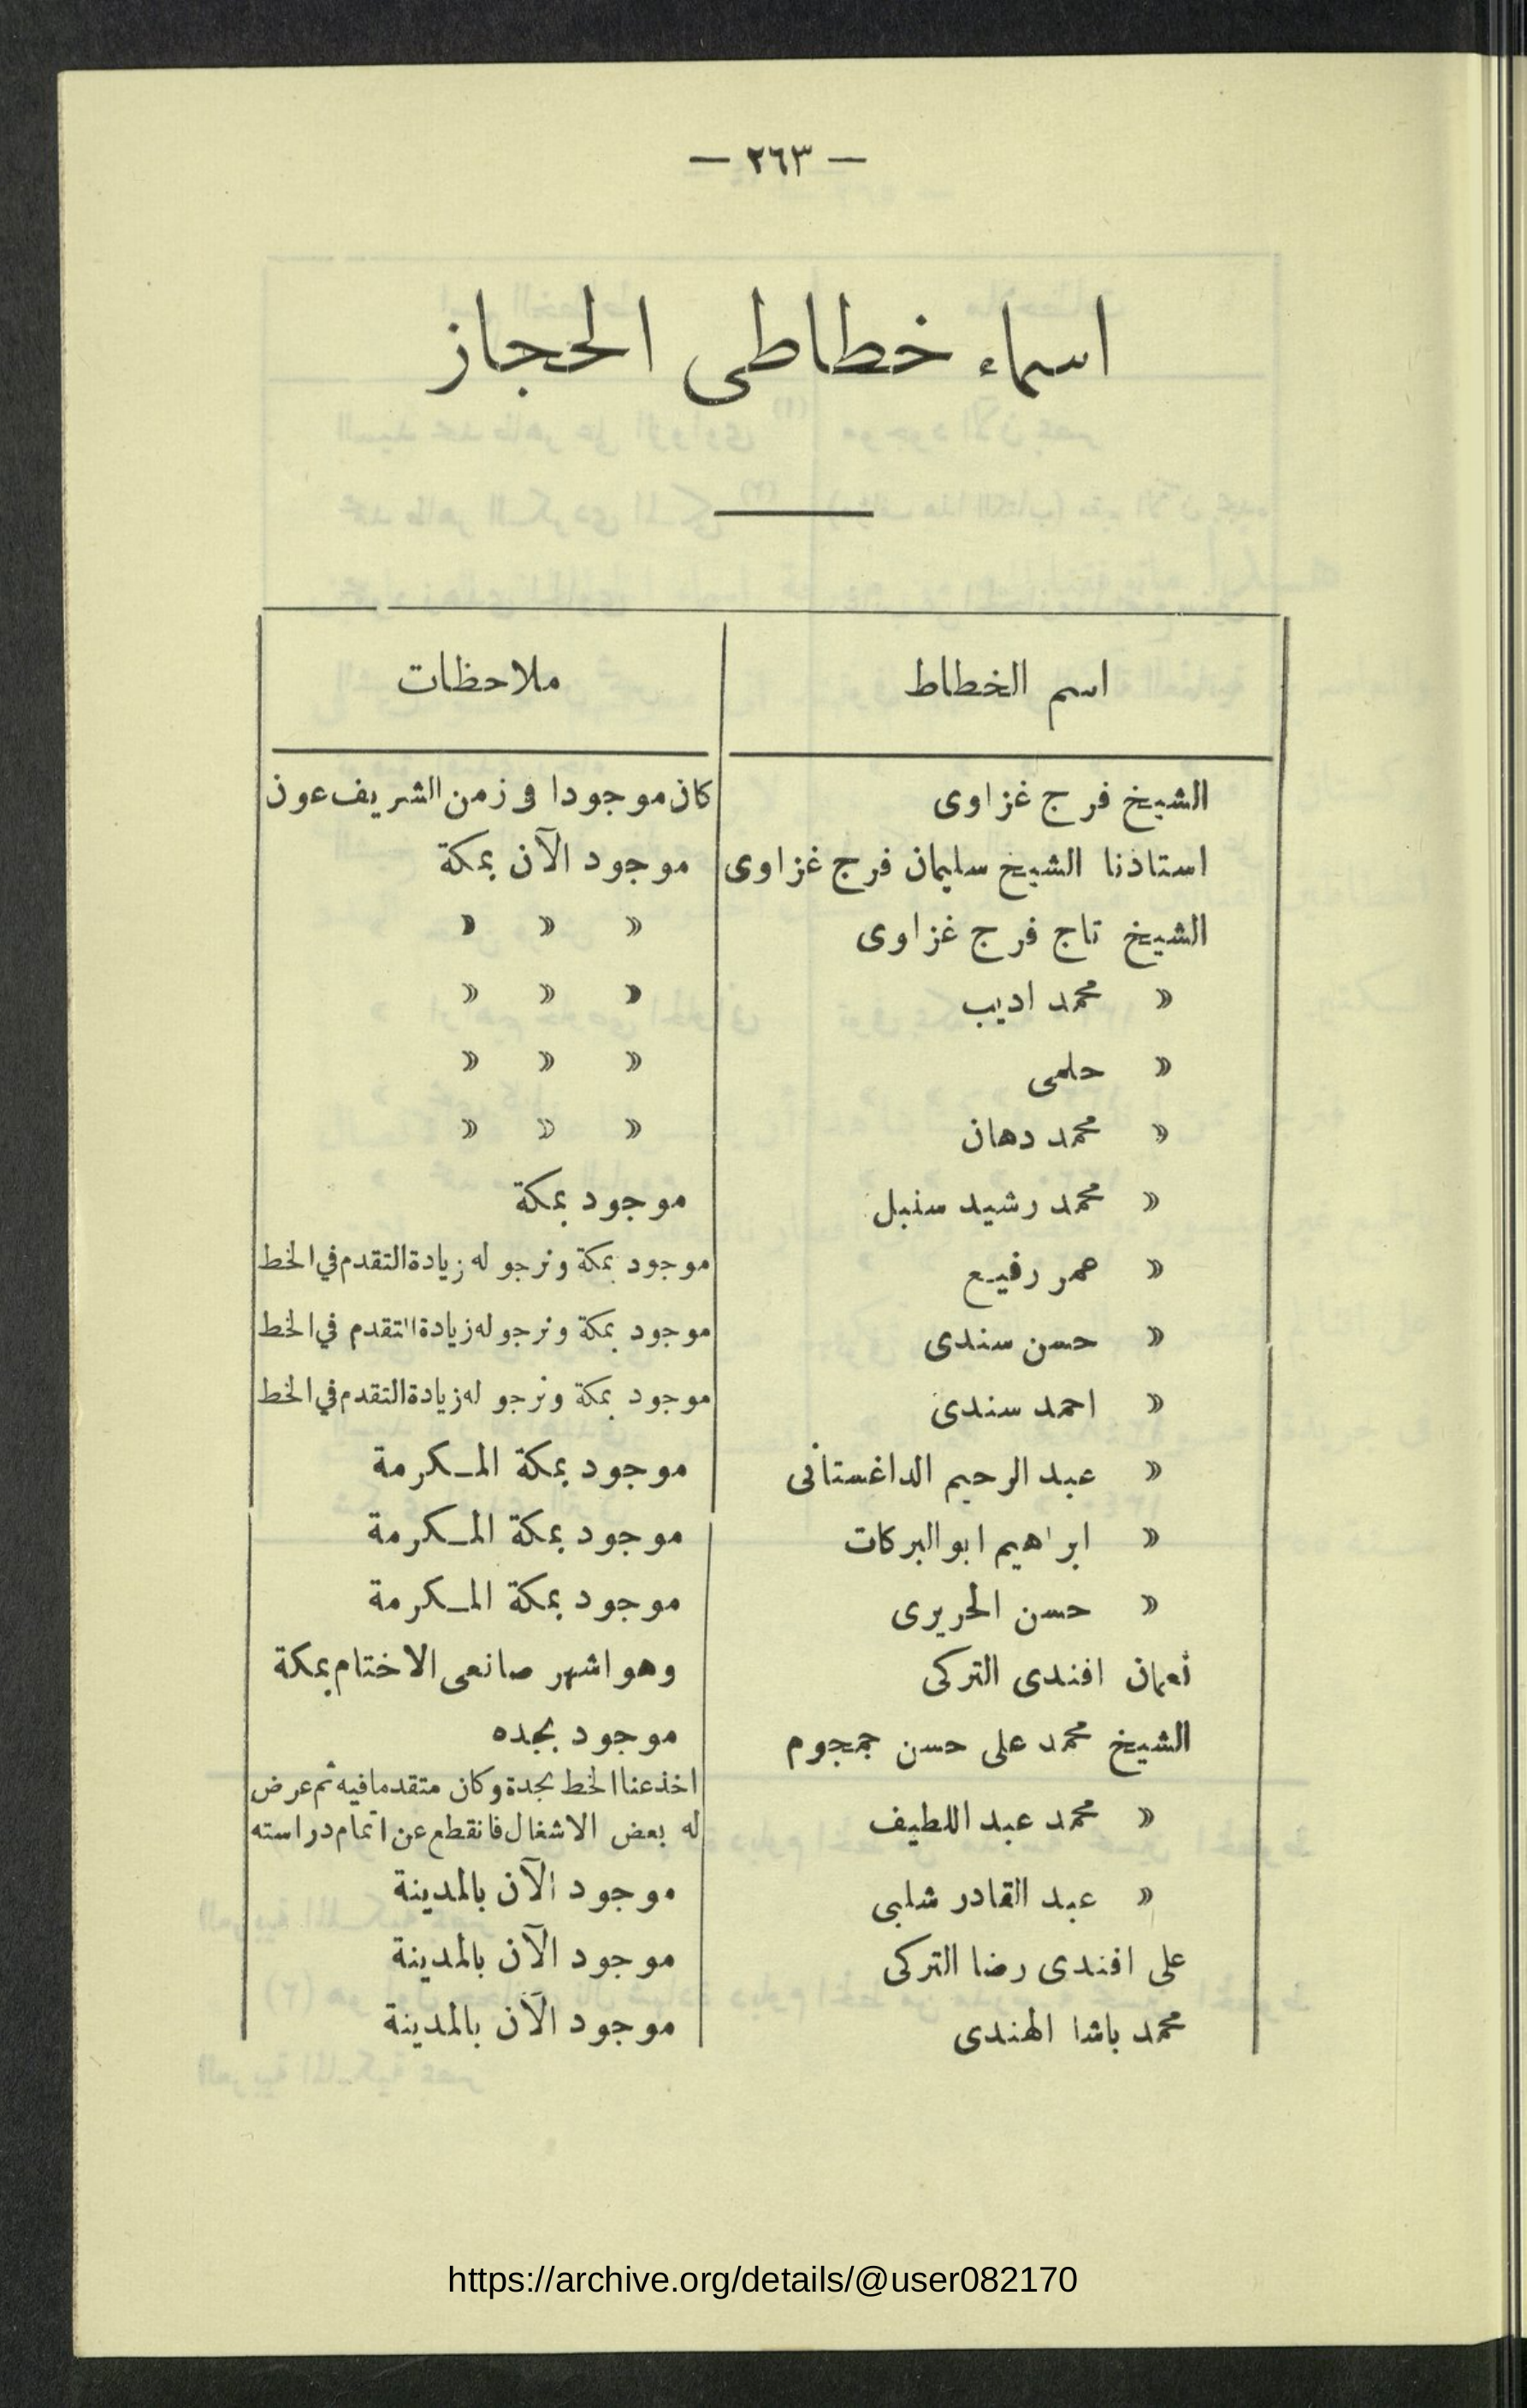 — ٢٦٣ —
اسماء خطاطى الحجاز
اسم الخطاط ملاحظات
الشيخ فرج غزاوى كان موجودا فى زمن الشريف عون
استاذنا الشيخ سليمان فرج غزاوى موجود الآن بمكة
الشيخ تاج فرج غزاوى » » »
» محمد اديب » » »
» حلمى » » »
» محمد دهان » » »
» محمد رشيد سنبل موجود بمكة
» عمر رفيع موجود بمكة ونرجو له زيادة التقدم في الخط
» حسن سندى موجود بمكة ونرجو له زيادة التقدم في الخط
» احمد سندى موجود بمكة ونرجو له زيادة التقدم في الخط
» عبد الرحيم الداغستانى موجود بمكة المكرمة
» ابراهيم ابو البركات موجود بمكة المكرمة
» حسن الحريرى موجود بمكة المكرمة
نعمان افندى التركى وهو اشهر صانعى الاختام بمكة
الشيخ محمد على حسن جمجوم موجود بجده
» محمد عبد اللطيف اخذ عنا الخط بجدة وكان متقدما فيه ثم عرض
له بعض الاشغال فانقطع عن اتمام دراسته
» عبد القادر شلبى موجود الآن بالمدينة
على افندى رضا التركى موجود الآن بالمدينة
محمد باشا الهندى موجود الآن بالمدينة
https://archive.org/details/@user082170